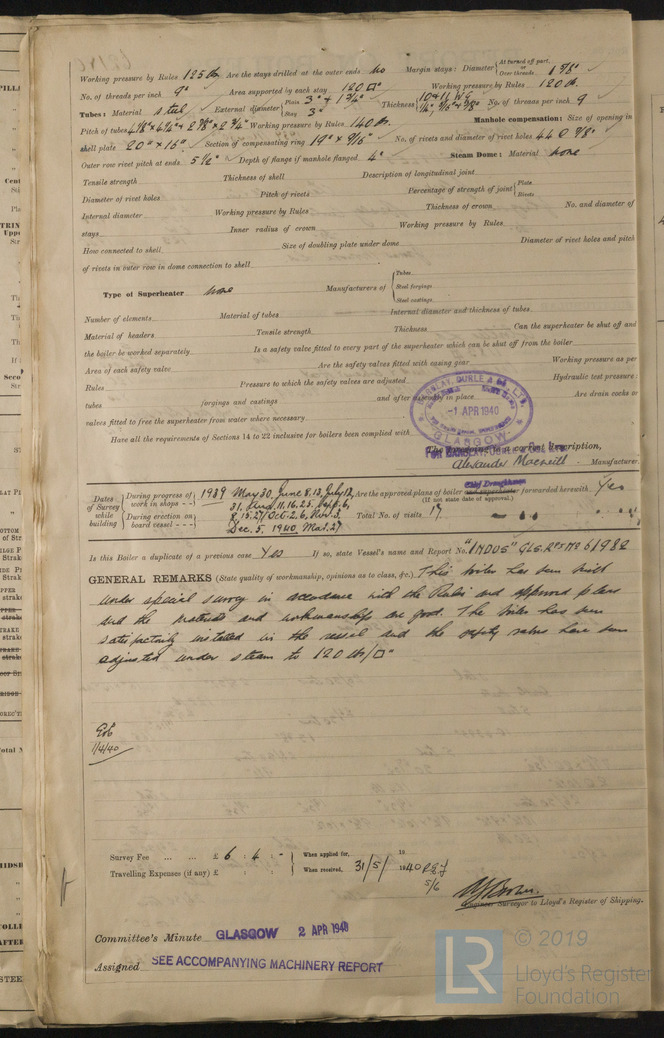 Working pressure by Rules 125 lb Are the stays drilled at the outer ends No Margin stays: Diameter { At turned off part, or Over threads 1 5/8"
No. of threads per inch 9" Area supported by each stay 120 □" Working pressure by Rules 120 lb.
Tubes: Material steel External diameter { Plain 3" Stay 3" Thickness No. of threads per inch 9
Pitch of tubes Working pressure by Rules 140 lb. Manhole compensation: Size of opening in
shell plate 20" x 16" Section of compensating ring 19" x 9/16" No. of rivets and diameter of rivet holes 44 @ 7/8"
Outer row rivet pitch at ends 5 1/2" Depth of flange if manhole flanged 4" Steam Dome: Material none
Tensile strength Thickness of shell Description of longitudinal joint
Diameter of rivet holes Pitch of rivets Percentage of strength of joint { Plate Rivets
Internal diameter Working pressure by Rules Thickness of crown No. and diameter of
stays Inner radius of crown Working pressure by Rules
How connected to shell Size of doubling plate under dome Diameter of rivet holes and pitch
of rivets in outer row in dome connection to shell
Type of Superheater none Manufacturers of { Tubes Steel forgings Steel castings
Number of elements Material of tubes Internal diameter and thickness of tubes
Material of headers Tensile strength Thickness Can the superheater be shut off and
the boiler be worked separately Is a safety valve fitted to every part of the superheater which can be shut off from the boiler
Area of each safety valve Are the safety valves fitted with easing gear Working pressure as per
Rules Pressure to which the safety valves are adjusted Hydraulic test pressure:
tubes forgings and castings and after assembly in place Are drain cocks or
valves fitted to free the superheater from water where necessary
Have all the requirements of Sections 14 to 22 inclusive for boilers been complied with
BARCLAY, CURLE & Co. LTD.
-1 APR 1940
GLASGOW
The foregoing is a correct description,
FOR BARCLAY, CURLE & CO. LTD.
Alexander Macneill Manufacturer.
Chief Draughtsman
Dates of Survey while building { During progress of work in shops - - } 1939 May 30, June 8, 13, July 12, Are the approved plans of boiler and superheater forwarded herewith Yes
31, Aug. 11, 16, 23, Sept. 6, (If not state date of approval.)
{ During erection on board vessel - - - } 8, 15, 27, Oct. 2, 6, Nov. 3, Total No. of visits 17
Dec. 5, 1940 Mar. 27
Is this Boiler a duplicate of a previous case Yes If so, state Vessel's name and Report No. "INDUS" GLS. RPT No 61982
GENERAL REMARKS (State quality of workmanship, opinions as to class, &c.) This boiler has been built
under special survey in accordance with the Rules and approved plans
and the materials and workmanship are good. The boiler has been
satisfactorily installed in the vessel and the safety valves have been
adjusted under steam to 120 lb/□"
1/4/40
Survey Fee ... ... £ 6 : 4 : - When applied for, 19
Travelling Expenses (if any) £ : : When received, 31/5/1940
5/6
Engineer Surveyor to Lloyd's Register of Shipping.
Committee's Minute GLASGOW 2 APR 1940
Assigned SEE ACCOMPANYING MACHINERY REPORT
LR © 2019
Lloyd's Register
Foundation